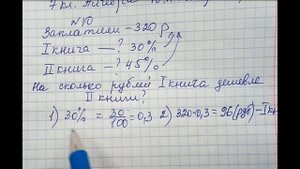 7 кл.
№10
Заплатили - 320 р.
I книга —? 30%
II книга —? 45%
На сколько рублей I книга дешевле
II книги?
1) 30% = 30/100 = 0,3 2) 320·0,3 = 96 (руб) - I кн